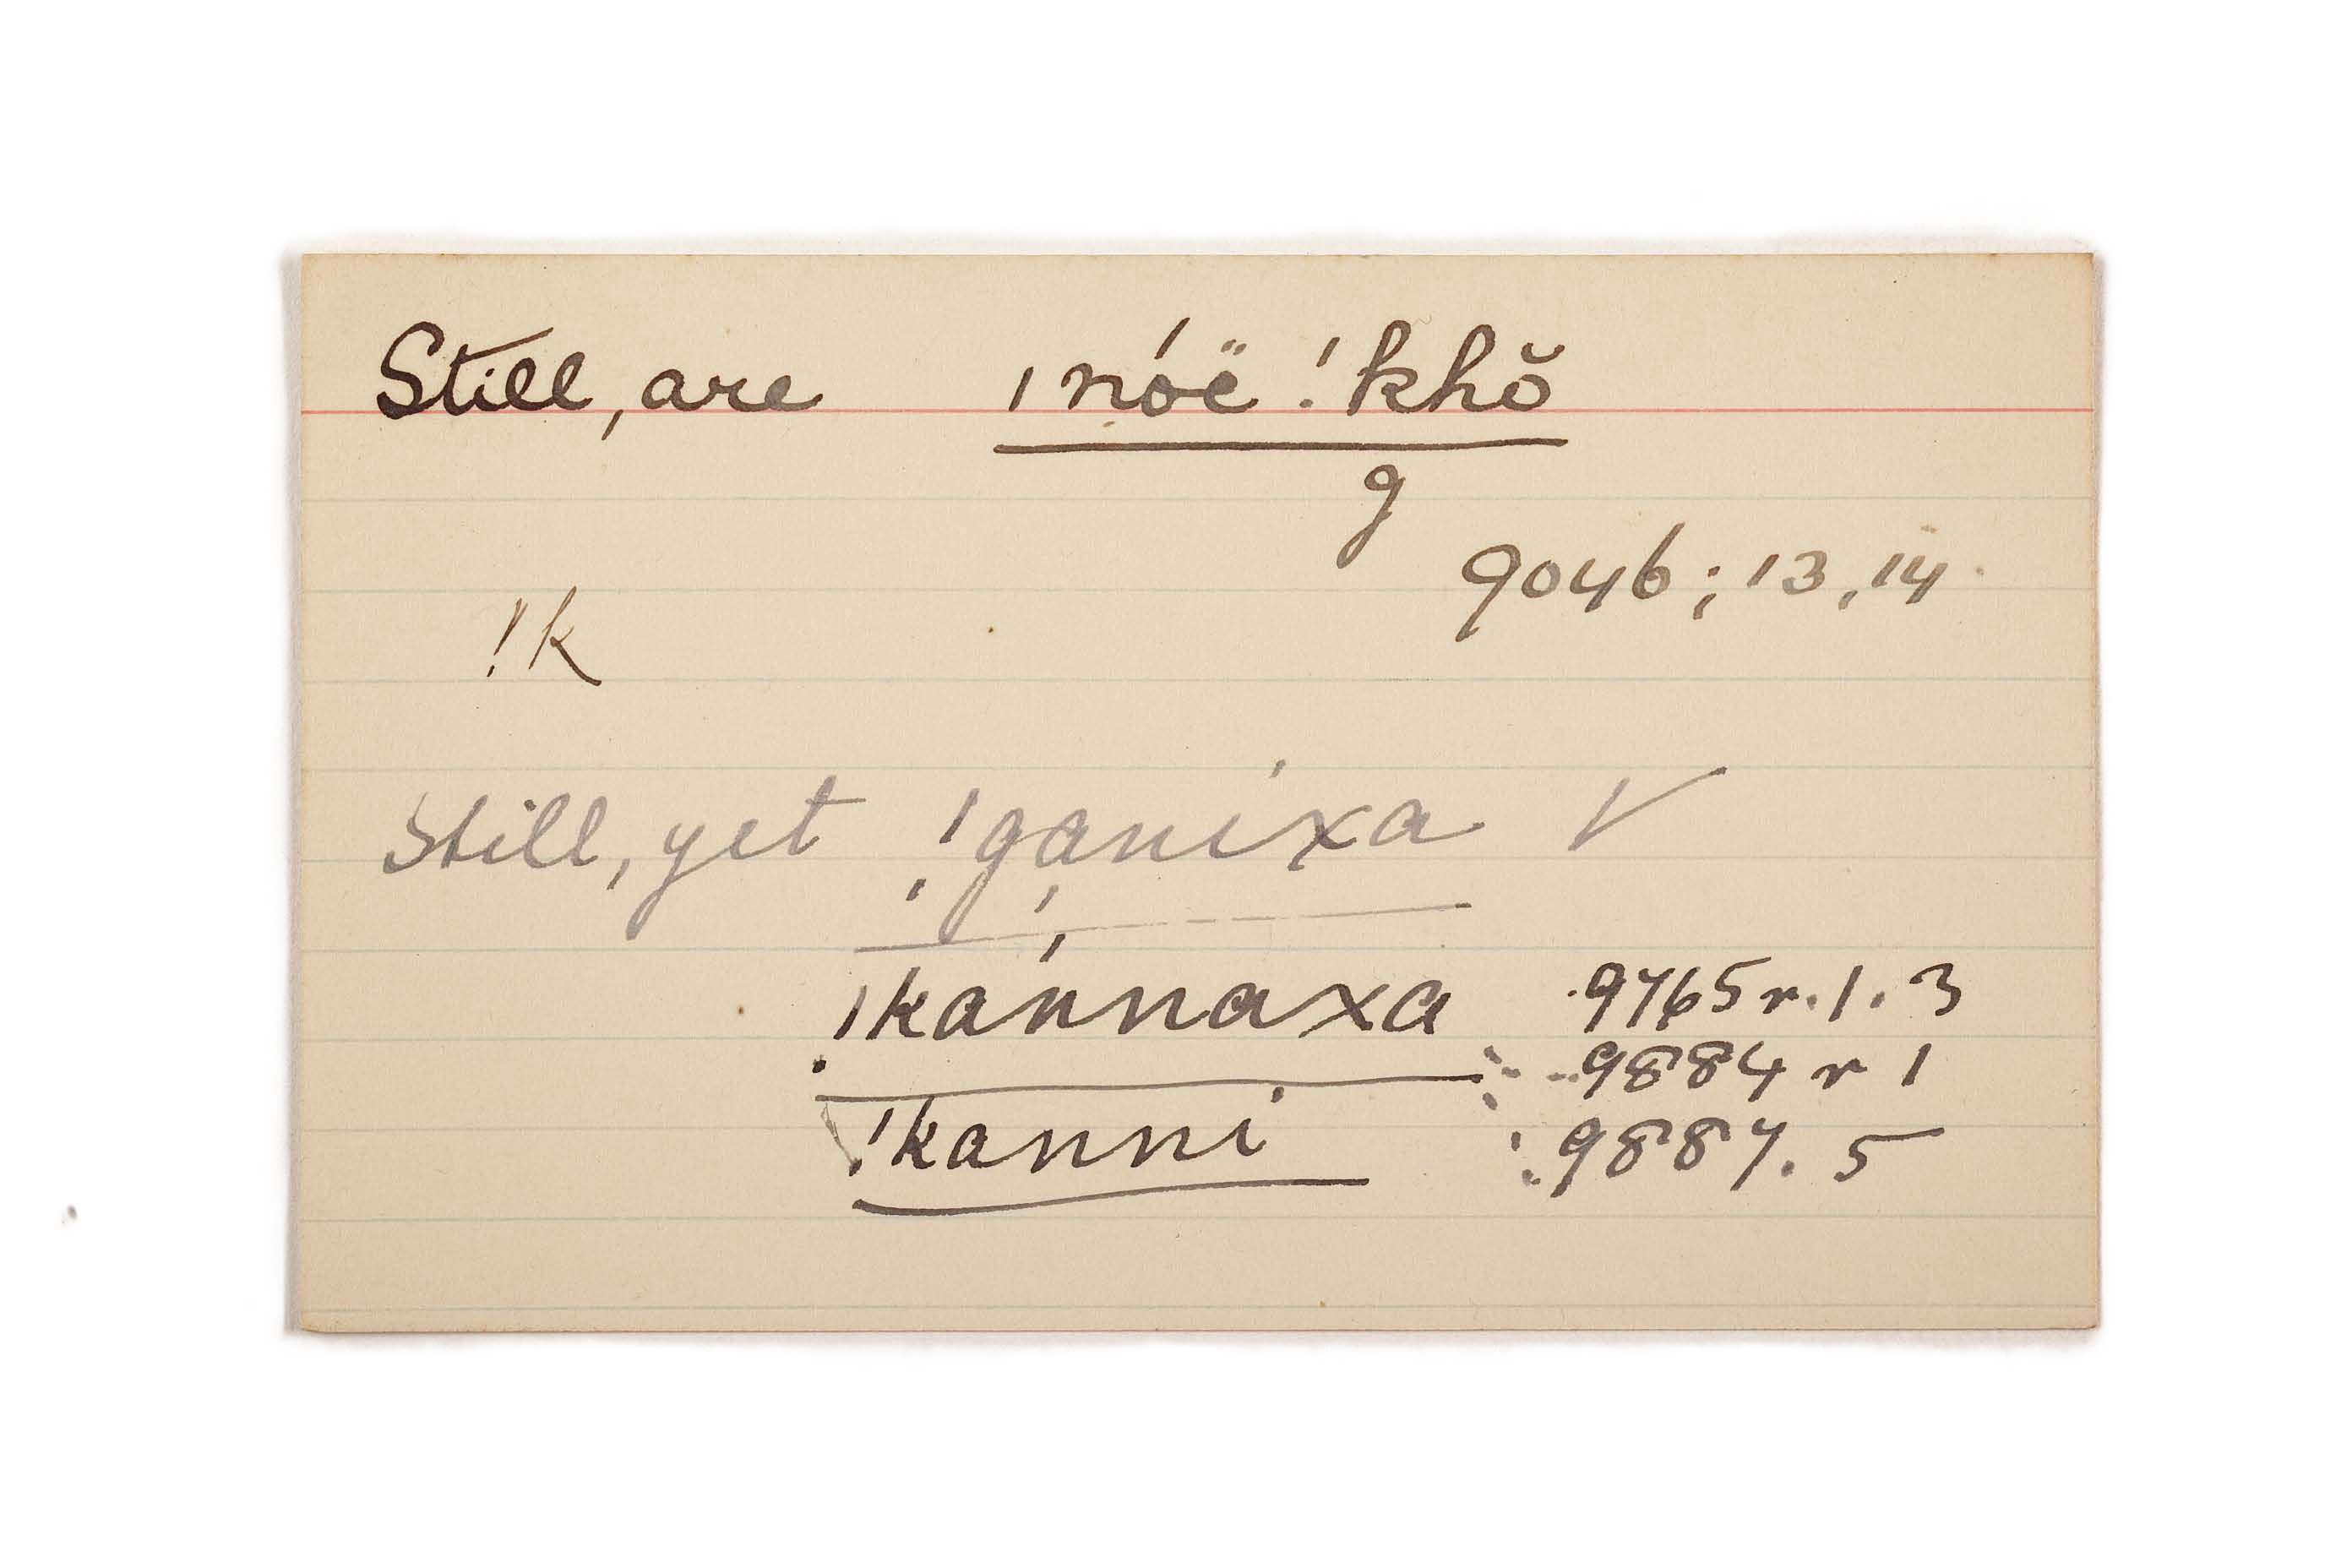 Still, are ǀnóë !khŏ
g
9046; 13, 14
!k
Still, yet !ganixa V
!kánnaxa 9765 r. 1. 3
9884 r 1
!kanni 9887. 5